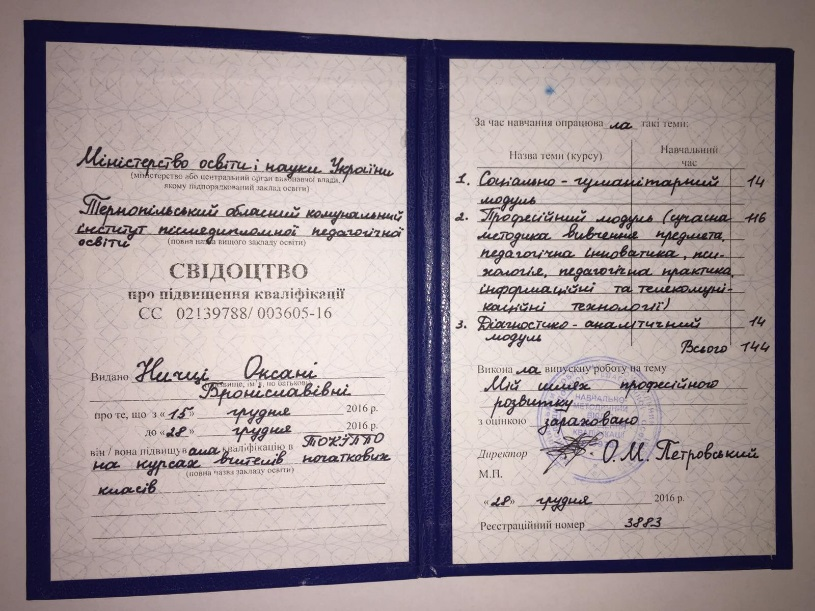 Міністерство освіти і науки України
(міністерство або центральний орган виконавчої влади,
якому підпорядкований заклад освіти)
Тернопільський обласний комунальний
інститут післядипломної педагогічної
освіти
(повна назва вищого закладу освіти)
СВІДОЦТВО
про підвищення кваліфікації
СС 02139788/ 003605-16
Видано Ничці Оксані
(прізвище, ім'я, по батькові)
Броніславівні
про те, що з «15» грудня 2016 р.
до «28» грудня 2016 р.
він / вона підвищув ала кваліфікацію в ТОКІППО
на курсах вчителів початкових
(повна назва закладу освіти)
класів
За час навчання опрацюва ла такі теми:
Назва теми (курсу) Навчальний
час
1. Соціально-гуманітарний 14
модуль
2. Професійний модуль (сучасна 116
методика вивчення предмета,
педагогічна інноватика, пси-
хологія, педагогічна практика,
інформаційні та телекомуні-
каційні технології)
3. Діагностико-аналітичний 14
модуль
Всього 144
Викона ла випускну роботу на тему
Мій шлях професійного
розвитку
з оцінкою зараховано
Директор О.М. Петровський
М.П.
«28» грудня 2016 р.
Реєстраційний номер 3883